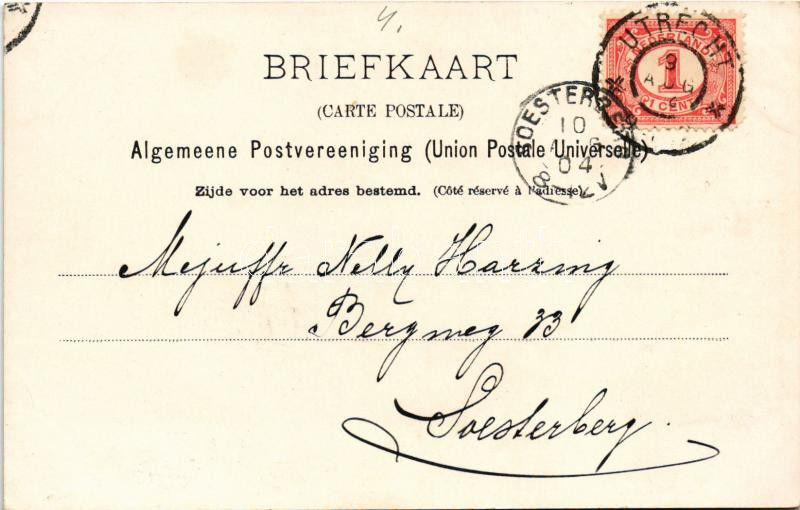 4.
BRIEFKAART
(CARTE POSTALE)
Algemeene Postvereeniging (Union Postale Universelle)
Zijde voor het adres bestemd. (Côté réservé à l'adresse)
NEDERLAND
1
CENT
UTRECHT
9
AUG
SOESTERBERG
10
AUG
04
8-12V
Mejuffr Nelly Harzing
Bergweg 33
Soesterberg.